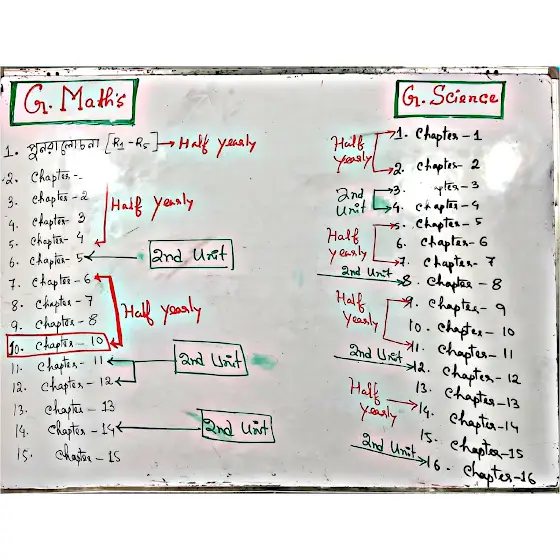 G. Maths
1. পুনরালোচনা [R1-R5] → Half yearly
2. Chapter-
3. Chapter-2
4. Chapter-3
Half yearly
5. Chapter-4
6. Chapter-5
2nd Unit
7. Chapter-6
8. Chapter-7
Half yearly
9. Chapter-8
10. Chapter-10
11. Chapter-11
2nd Unit
12. Chapter-12
13. Chapter-13
14. Chapter-14
2nd Unit
15. Chapter-15
G. Science
1. Chapter-1
Half yearly
2. Chapter-2
3. pter-3
2nd Unit
4. Chapter-4
5. Chapter-5
Half yearly
6. Chapter-6
7. Chapter-7
2nd Unit
8. Chapter-8
9. Chapter-9
Half Yearly
10. Chapter-10
11. Chapter-11
2nd Unit
12. Chapter-12
13. Chapter-13
Half yearly
14. Chapter-14
15. Chapter-15
2nd Unit
16. Chapter-16